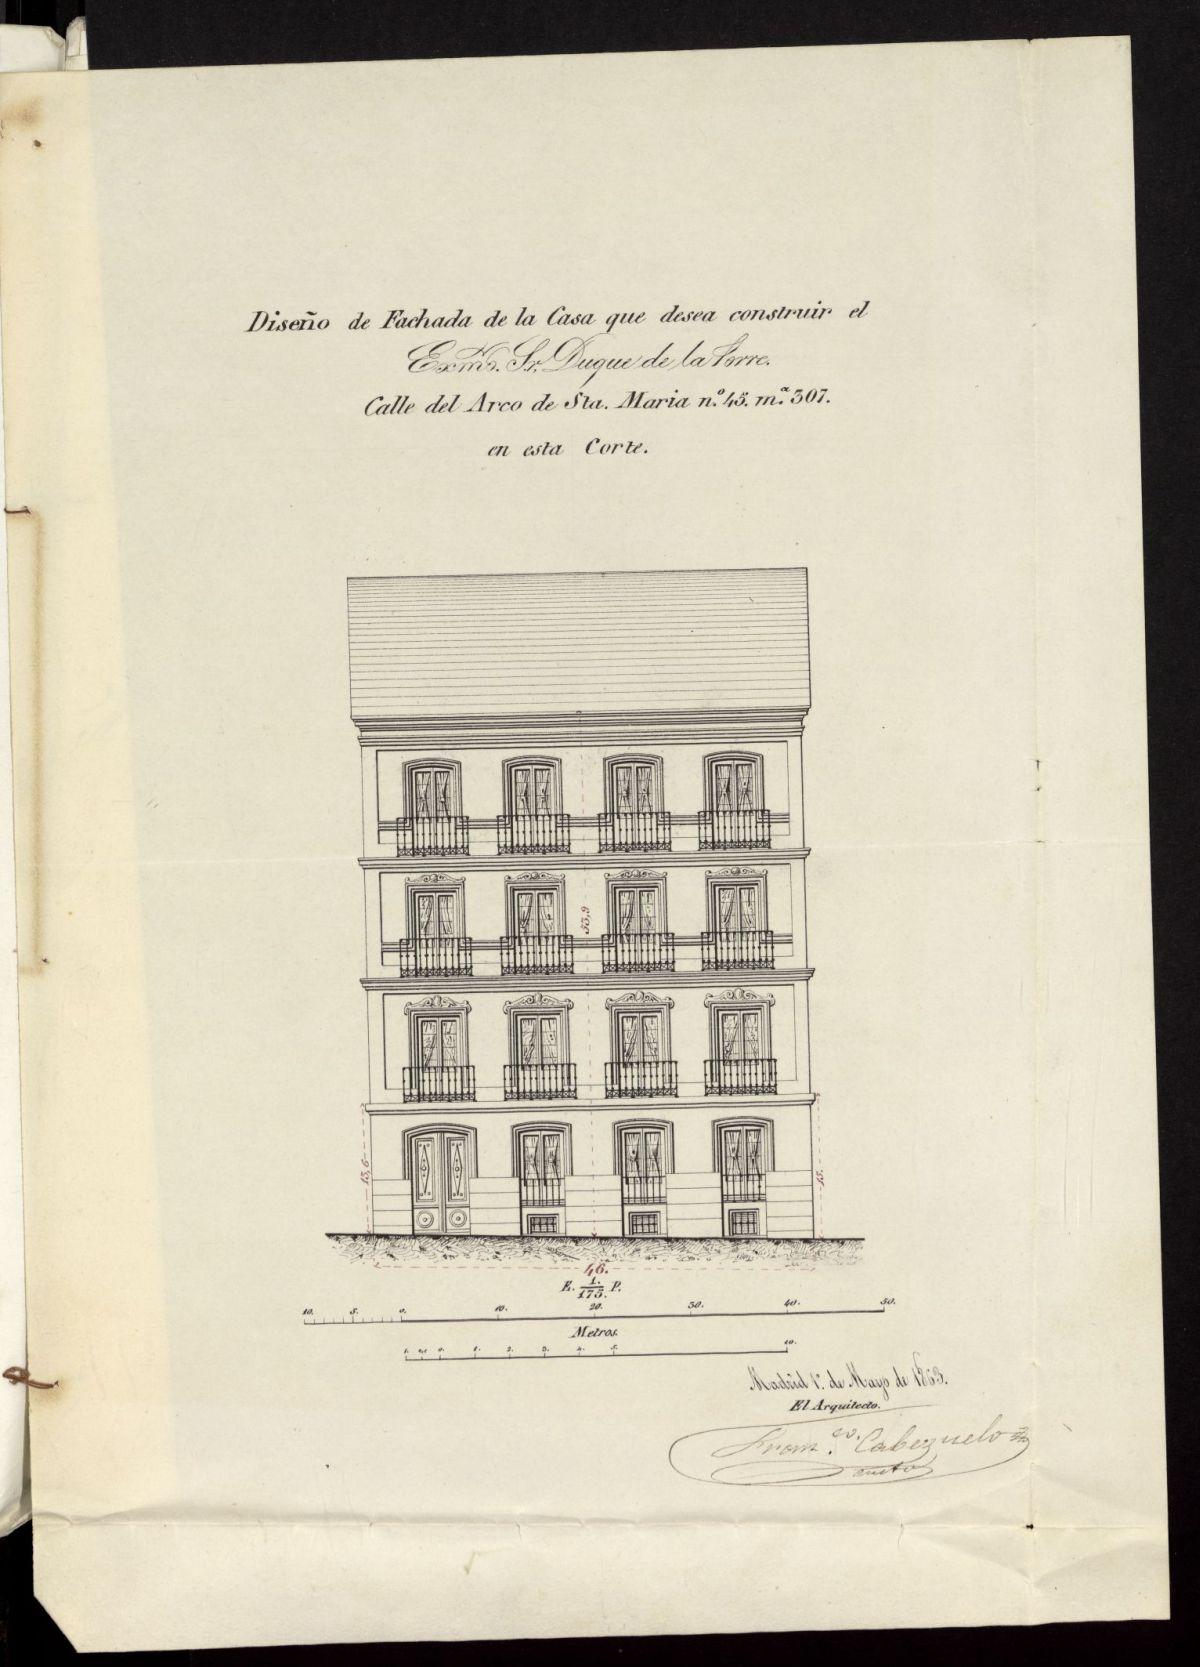 Diseño de Fachada de la Casa que desea construir el
Exmo. Sr. Duque de la Torre.
Calle del Arco de Sta. Maria n.º 45. m.ª 307.
en esta Corte.
53,9
13,6
15.
46.
E. 1. P.
175.
10. 5. 0. 10. 20. 30. 40. 50.
Metros.
1. 0,5 0. 1. 2. 3. 4. 5. 10.
Madrid 1º. de Mayo de 1863.
El Arquitecto.
Cabezuelo